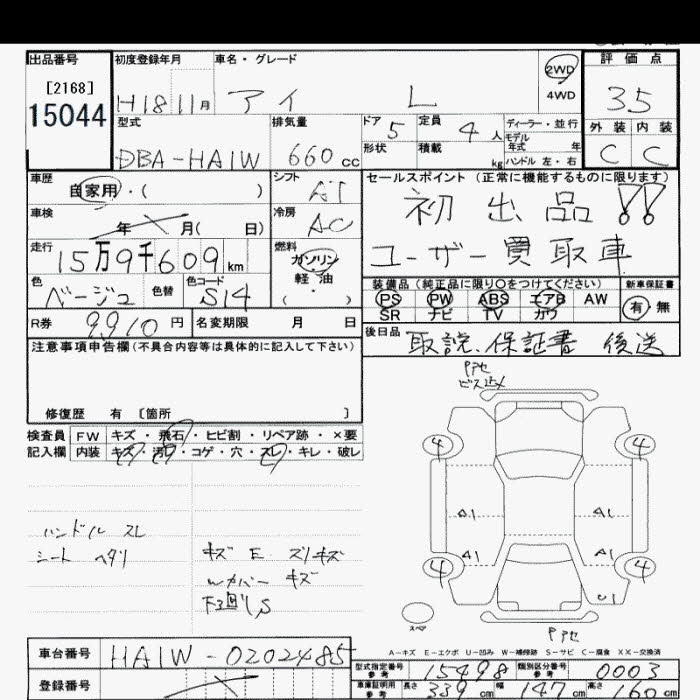 出品番号 初度登録年月 車名・グレード 2WD 4WD 評価点
[2168]
15044 H18 11月 アイ L 3.5
型式 排気量 ドア 5 定員 4人 ディーラー・並行 外装 内装
モデル年式 年
DBA-HA1W 660cc 形状 積載 kg ハンドル 左・右 C C
車歴 自家用・( ) シフト AT セールスポイント (正常に機能するものに限ります)
車検 年 月( 日) 冷房 AC 初出品!!
走行 15万9千609km 燃料 ガソリン・軽油・( ) ユーザー買取車
色 ベージュ 色替 色コード S14 装備品(純正品に限り○をつけてください) 新車保証書
PS PW ABS エアB AW 有・無
SR ナビ TV カワ
R券 9910円 名変期限 月 日 後日品 取説、保証書 後送
注意事項申告欄(不具合内容等は具体的に記入して下さい)
修復歴 有 [箇所 ]
検査員 FW キズ・飛石・ヒビ割・リペア跡・×要
記入欄 内装 キズ・汚レ・コゲ・穴・スレ・キレ・破レ
ハンドル スレ
シート ヘタリ
キズ E スリキズ
Wカバー キズ
下廻りS
Pアセ
ビス込メ
4 4
A1 A1
A1 A1
4 4
U1
スペア
Pアセ
A-キズ E-エクボ U-凹み W-補修跡 S-サビ C-腐食 XX-交換済
車台番号 HA1W-0202485
型式指定番号 参考 15498 類別区分番号 参考 0003
登録番号
車庫証明用 参考 長さ 339cm 幅 147cm 高さ 160cm